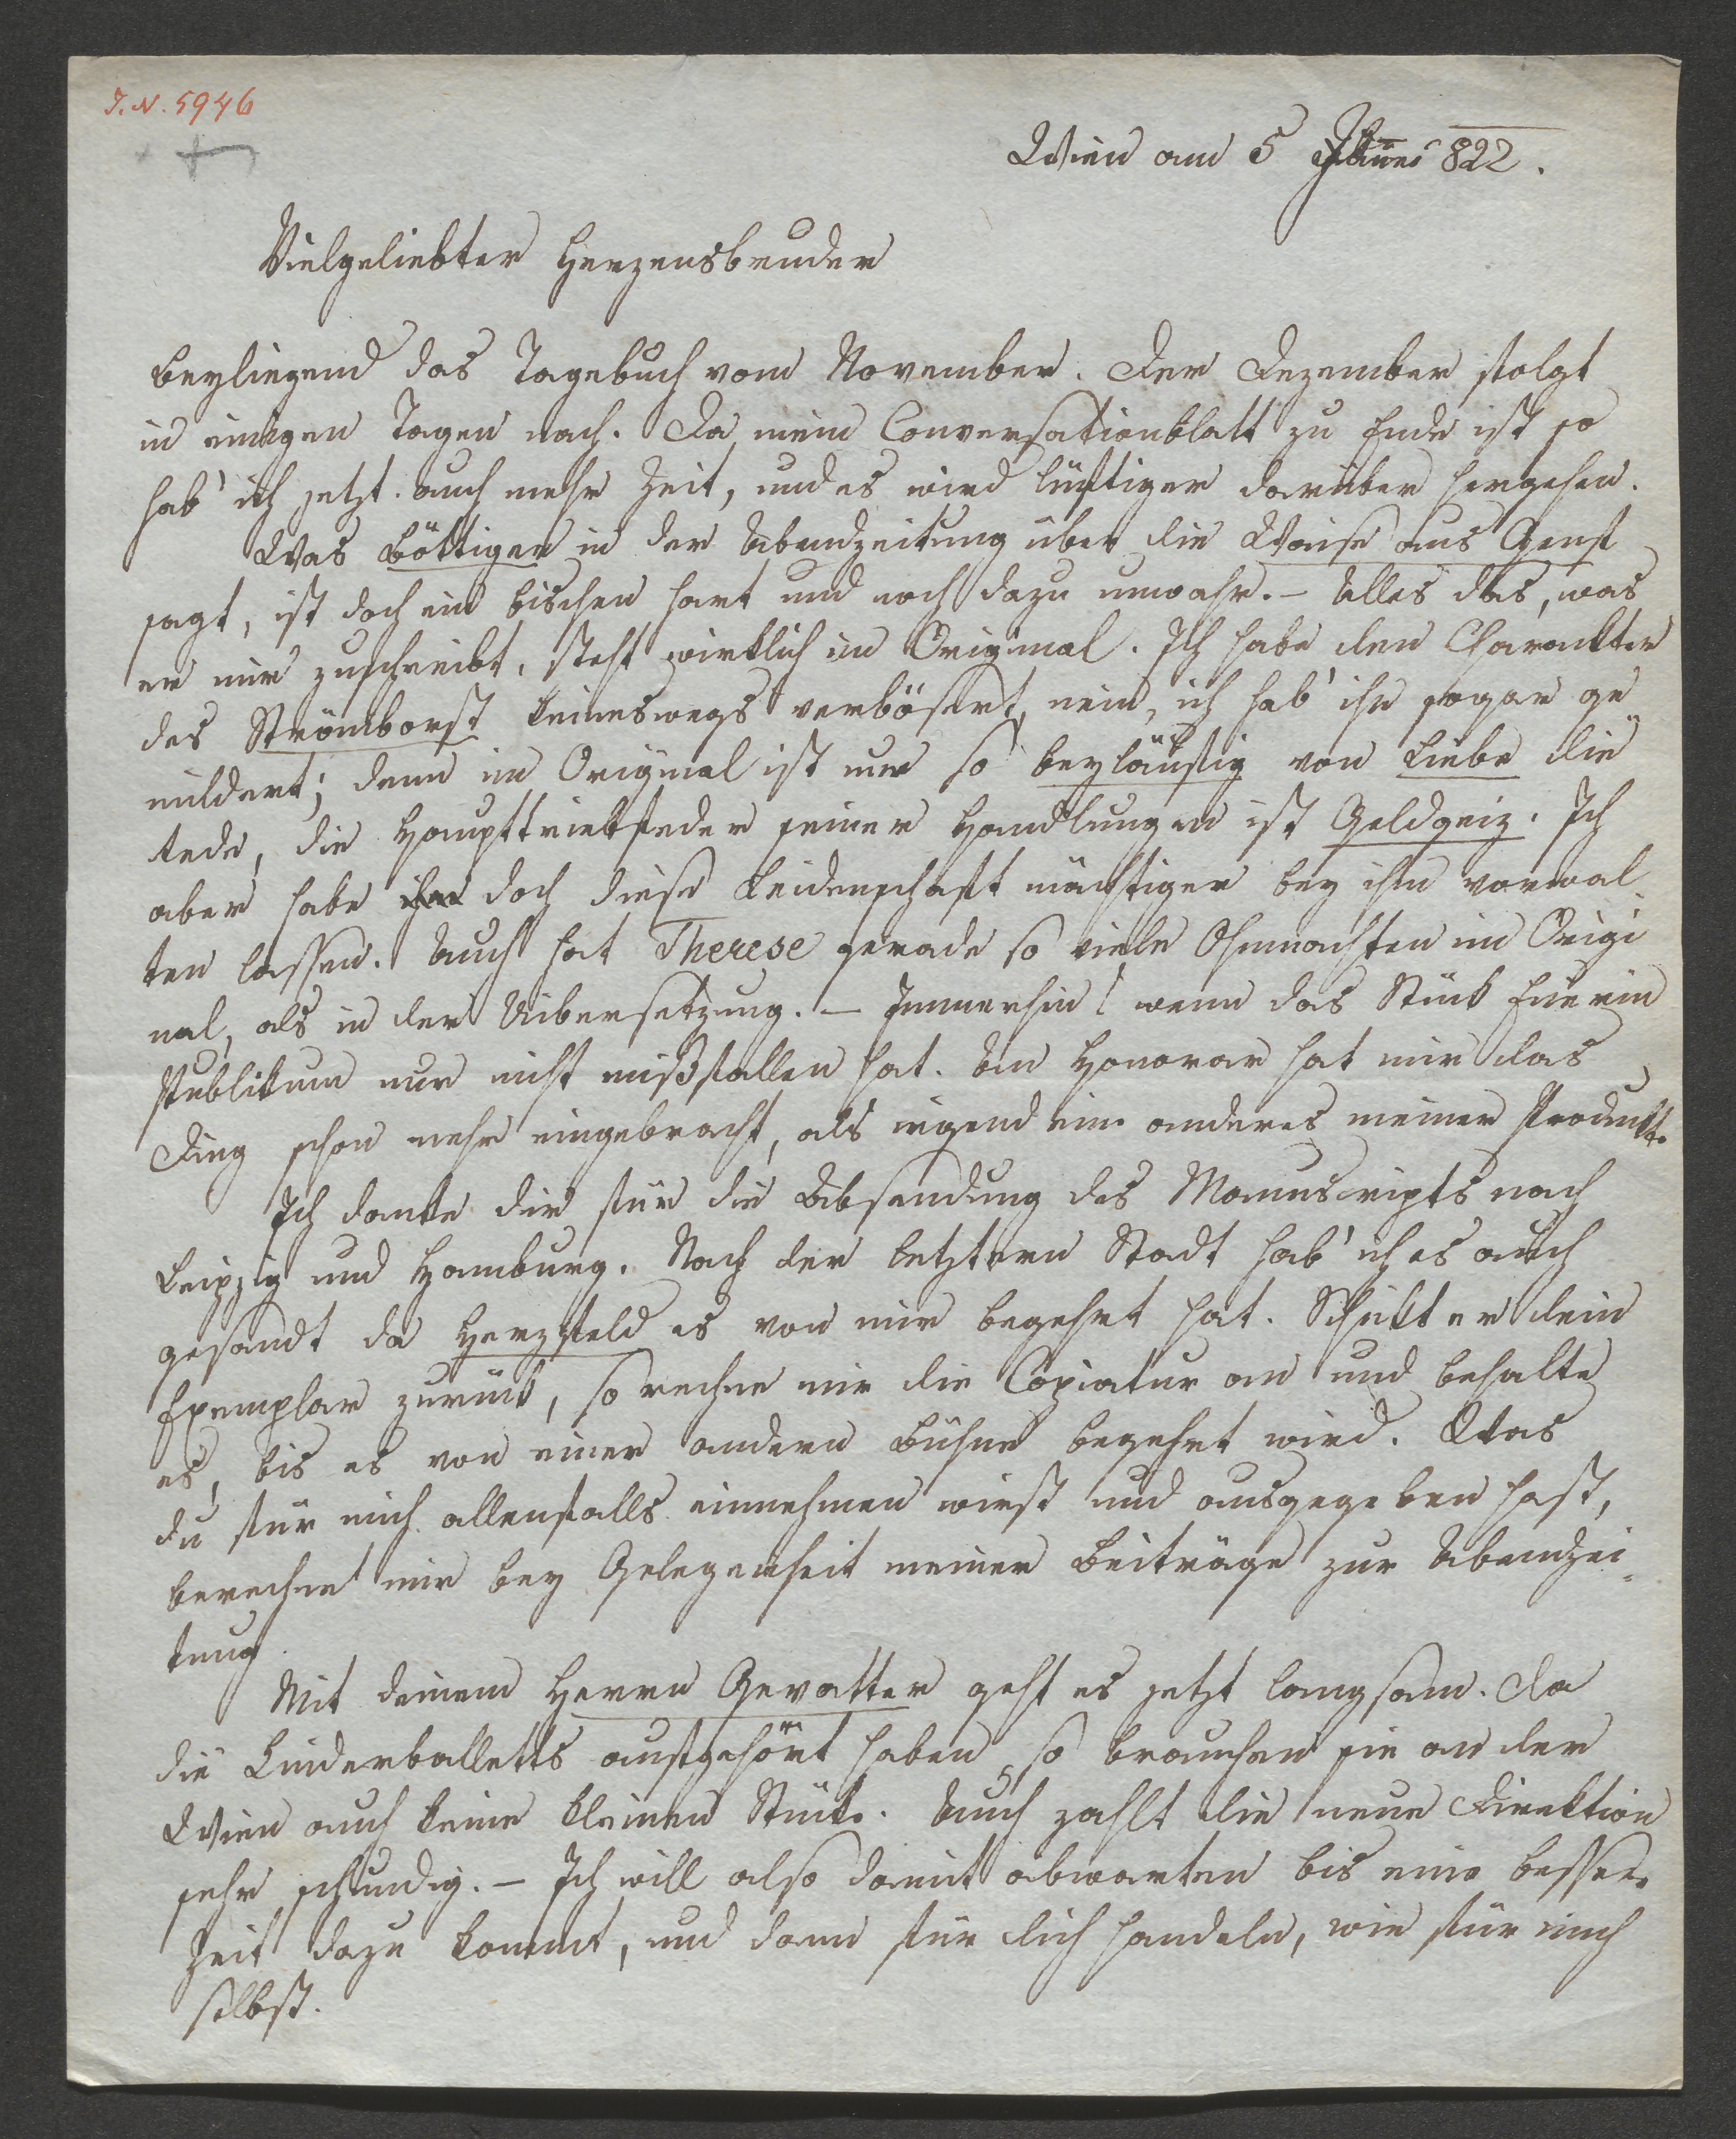 I. N. 5946
Wien am 5 Jäner 822.
Vielgeliebter Herzensbruder
Beyliegend das Tagebuch vom November. Der Dezember folgt
in einigen Tagen nach. Da mein Conversationblatt zu Ende ist so
hab' ich jetzt auch mehr Zeit, und es wird lustiger darüber hergehen.
Was Böttiger in der Abendzeitung über die Waise aus Genf
sagt, ist doch ein bischen hart und noch dazu unwahr. – Alles das, was
er mir zuschreibt, steht wirklich im Original. Ich habe den Charackter
des Strömborst keineswegs verbösert, nein, ich hab' ihn sogar ge
mildert; denn im Original ist nur so beyläufig von Liebe die
Rede, die Haupttriebfeder seiner Handlungen ist Geldgeiz. Ich
aber habe doch diese Leidenschaft mächtiger bey ihm vorwal
ten lassen. Auch hat Therese gerade so viele Ohnmachten im Origi
nal, als in der Uibersetzung. – Immerhin! wenn das Stück Euerm
Publikum nur nicht mißfallen hat. An Honorar hat mir das
Ding schon mehr eingebracht, als irgend ein anderes meiner Produkte.
Ich danke dir für die Absendung des Manuscripts nach
Leipzig und Hamburg. Nach der letztern Stadt hab' ich es auch
gesandt da Herzfeld es von mir begehrt hat. Schickt er dein
Exemplar zurück, so rechne mir die Copiatur an und behalte
es, bis es von einer andern Bühne begehrt wird. Was
du für mich allenfalls einnehmen wirst und ausgegeben hast,
berechne mir bey Gelegenheit meiner Beiträge zur Abendzei
tung
Mit deinem Herrn Gevatter geht es jetzt langsam. Da
die Kinderballetts aufgehört haben, so brauchen sie an der
Wien auch keine kleinen Stücke. Auch zahlt die neue Direktion
sehr schundig. – Ich will also damit abwarten bis eine bessere
Zeit dazu kommt, und dann für dich handeln, wie für mich
selbst.